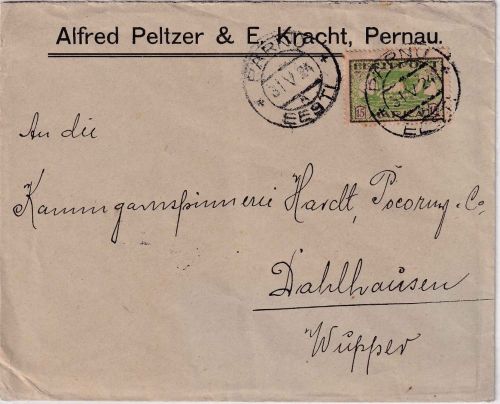 Alfred Peltzer & E. Kracht, Pernau.
PÄRNU
31.V.24
A
EESTI
PÄRNU
31.V.24
EESTI
15
An die
Kammgarnspinnerei Hardt, Pocorny & Co,
Dahlhausen
Wupper